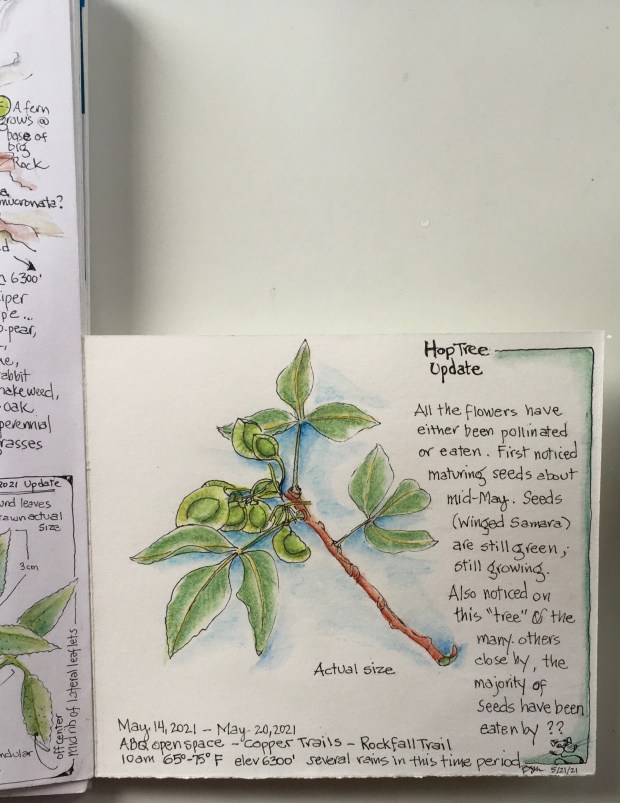 A fern
grows @
base of
big
Rock
mucronata?
6300'
pear,
rabbit
oak
perennial
2021 Update
leaves
actual
size
3cm
offcenter
midrib of lateral leaflets
Hop Tree
Update
All the flowers have
either been pollinated
or eaten. First noticed
maturing seeds about
mid-May. Seeds
(Winged Samara)
are still green,
still growing.
Also noticed on
this "tree" & the
many others
close by, the
majority of
seeds have been
eaten by ??
Actual size
May 14, 2021 - May 20, 2021
ABQ open space - Copper Trails - Rockfall Trail
10am 65°-75° F elev 6300' several rains in this time period
5/21/21